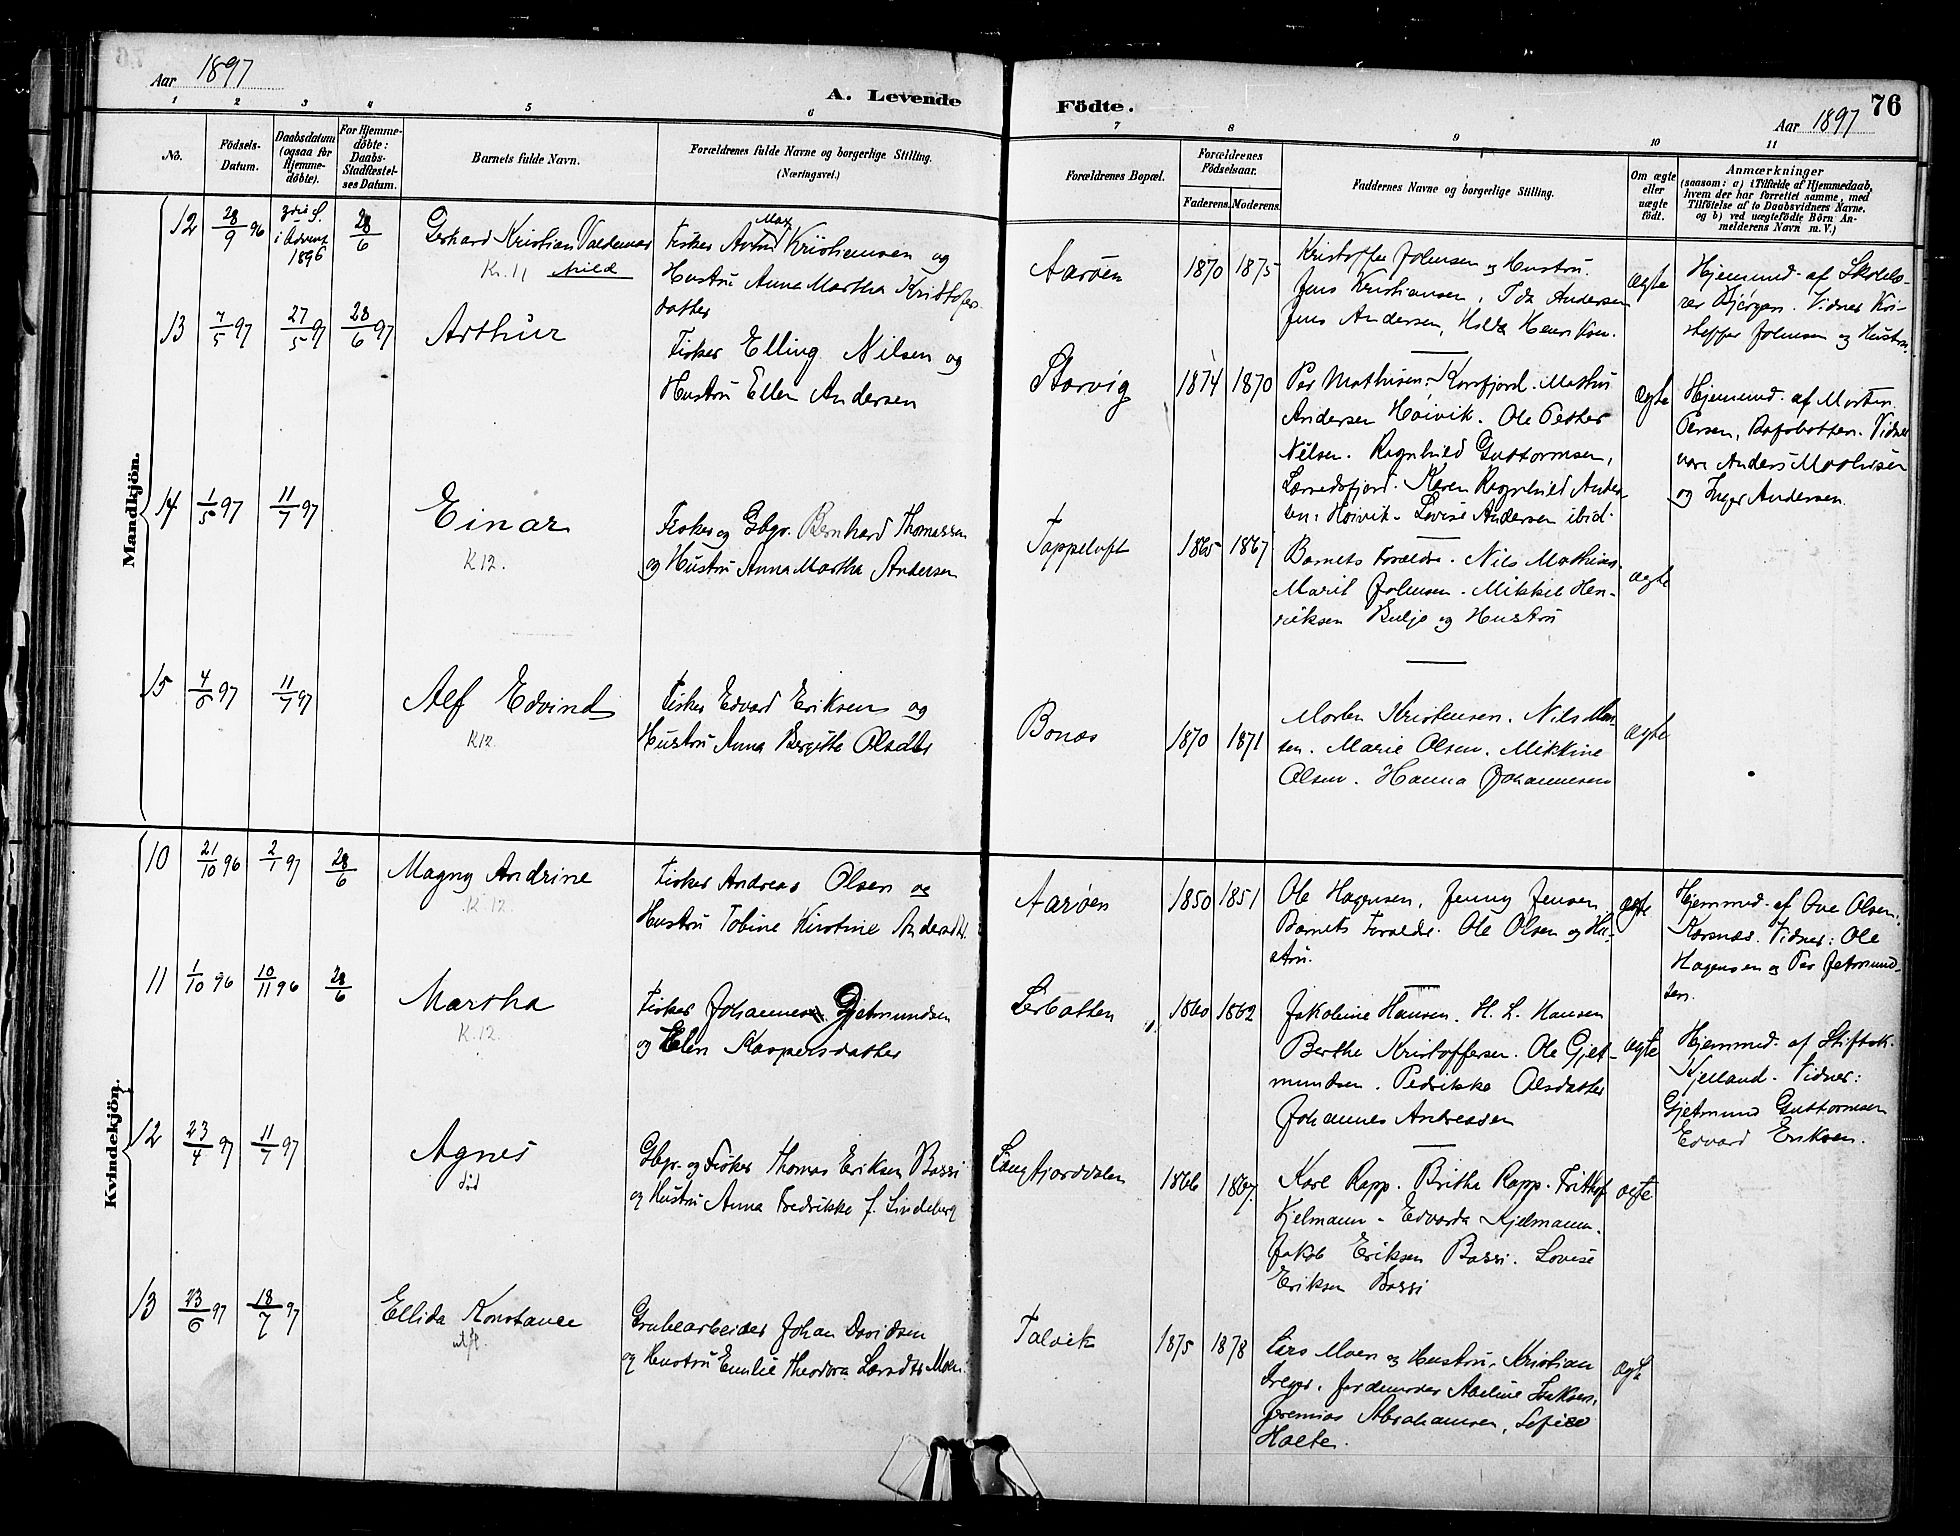 Aar 1897
A. Levende
Födte.
76
Aar 1897
1 2 3 4 5 6 7 8 9 10 11
No.
Födsels-
Datum.
Daabsdatum
(ogsaa for
Hjemme-
döbte).
For Hjemme-
döbte:
Daabs-
Stadfæstel-
ses Datum.
Barnets fulde Navn.
Forældrenes fulde Navne og borgerlige Stilling.
(Næringsvei.)
Forældrenes Bopæl.
Forældrenes
Födselsaar.
Faderens. Moderens.
Faddernes Navne og borgerlige Stilling.
Om ægte
eller
uægte
födt.
Anmærkninger
(saasom: a) i Tilfælde af Hjemmedaab,
hvem der har forrettet samme, med
Tilföielse af to Daabsvidners Navne,
og b) ved uægtefödte Börn An-
melderens Navn m. V.)
Mandkjön.
12
28/9 96
3die S.
i Advent
1896
28/6
Gerhard Kristian Valdemar
Kr. 11
Fisker Max Kristiansen og
Hustru Anna Martha Kristofer-
datter
Aarøen
1870 1875
Kristoffer Johnsen og Hustru.
Jens Kristiansen, Ida Andersen
Jens Andersen, Hilda Henriksen.
ægte
Hjemmed. af Skolelæ-
rer Bjørgan. Vidner Kri-
stoffer Johnsen og Hustru.
13
7/5 97
27/5 97
28/6 97
Arthur
Fisker Elling Nilsen og
Hustru Ellen Andersen
Storvig
1874 1870
Per Mathisen, Korsfjord. Mathis
Andersen Høivik. Ole Peder
Nilsen. Ragnhild Guttormsen,
Lærredsfjord. Karen Ragnhild Ander-
sen, Høivik. Lovise Andersen ibid.
ægte
Hjemmed. af Morten
Persen, Rafsbotten. Vidner
vare Anders Mathisen
og Inger Andersen.
14
1/5 97
11/7 97
Einar
K 12.
Fisker og Gbgr. Bernhard Thomassen
og Hustru Anna Martha Andersen
Tappeluft
1865 1867
Barnets Forældre. Nils Mathisen
Marit Johnsen. Mikkel Hen-
riksen Buljo og Hustru
ægte
15
4/6 97
11/7 97
Alf Edvind
K 12.
Fisker Edvard Eriksen og
Hustru Anna Bergitte Olsdtr
Bonæs
1870 1871
Morten Kristensen. Nils Han-
sen. Marie Olsen. Mikkine
Olsen. Hanna Johannesen
ægte
Kvindekjön.
10
21/10 96
2/1 97
28/6
Magny Andrine
K 12
Fisker Andreas Olsen og
Hustru Tobine Kirstine Andersdtr.
Aarøen
1850 1851
Ole Hagensen, Jenny Jensen
Barnets Forældre. Ole Olsen og Hu-
stru.
ægte
Hjemmed. af Ove Olsen,
Korsnæs. Vidner: Ole
Hagensen og Per Jetmund-
sen.
11
1/10 96
10/11 96
28/6
Martha
K. 12.
Fisker Johannes Gjetmundsen
og Elen Kaspersdatter
Lerbotten
1860 1862
Jakobine Hansen. H. L. Hansen
Berthe Kristoffersen. Ole Gjet-
mundsen. Pedrikke Olsdatter
Johannes Andreassen
ægte
Hjemmed. af Stiftsk.
Kjelland. Vidner:
Gjetmund Guttormsen
Edvard Eriksen.
12
23/4 97
11/7 97
Agnes
död
Gbgr. og Fisker Thomas Eriksen Bassi
og Hustru Anna Fredrikke f. Lindeberg
Langfjorddalen
1866 1867
Karl Rapp. Britha Rapp. Fritthof
Kjelmann. Edvarda Kjelmann.
Jakob Eriksen Bassi. Lovise
Eriksen Bassi
ægte
13
23/6 97
18/7 97
Ellida Konstance
utfl.
Grubearbeider Johan Davidsen
og Hustru Emilie Theodora Larsdtr Moen
Talvik
1875 1878
Lars Moen og Hustru, Kristian
Jordemoder Abeline Isaksen,
Jeremias Abrahamsen, Sofie
Holten.
ægte